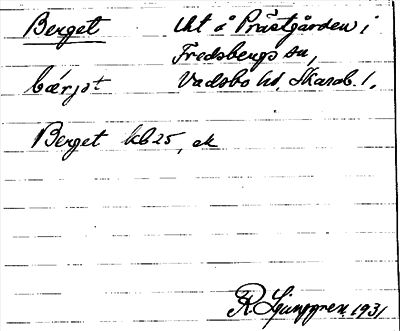 Berget Uht å Prästgården i
Fredsbergs sn,
Vadsbo hd, Skarab. l.
bærjət
Berget kb 25, ek
R Ljunggren 1931